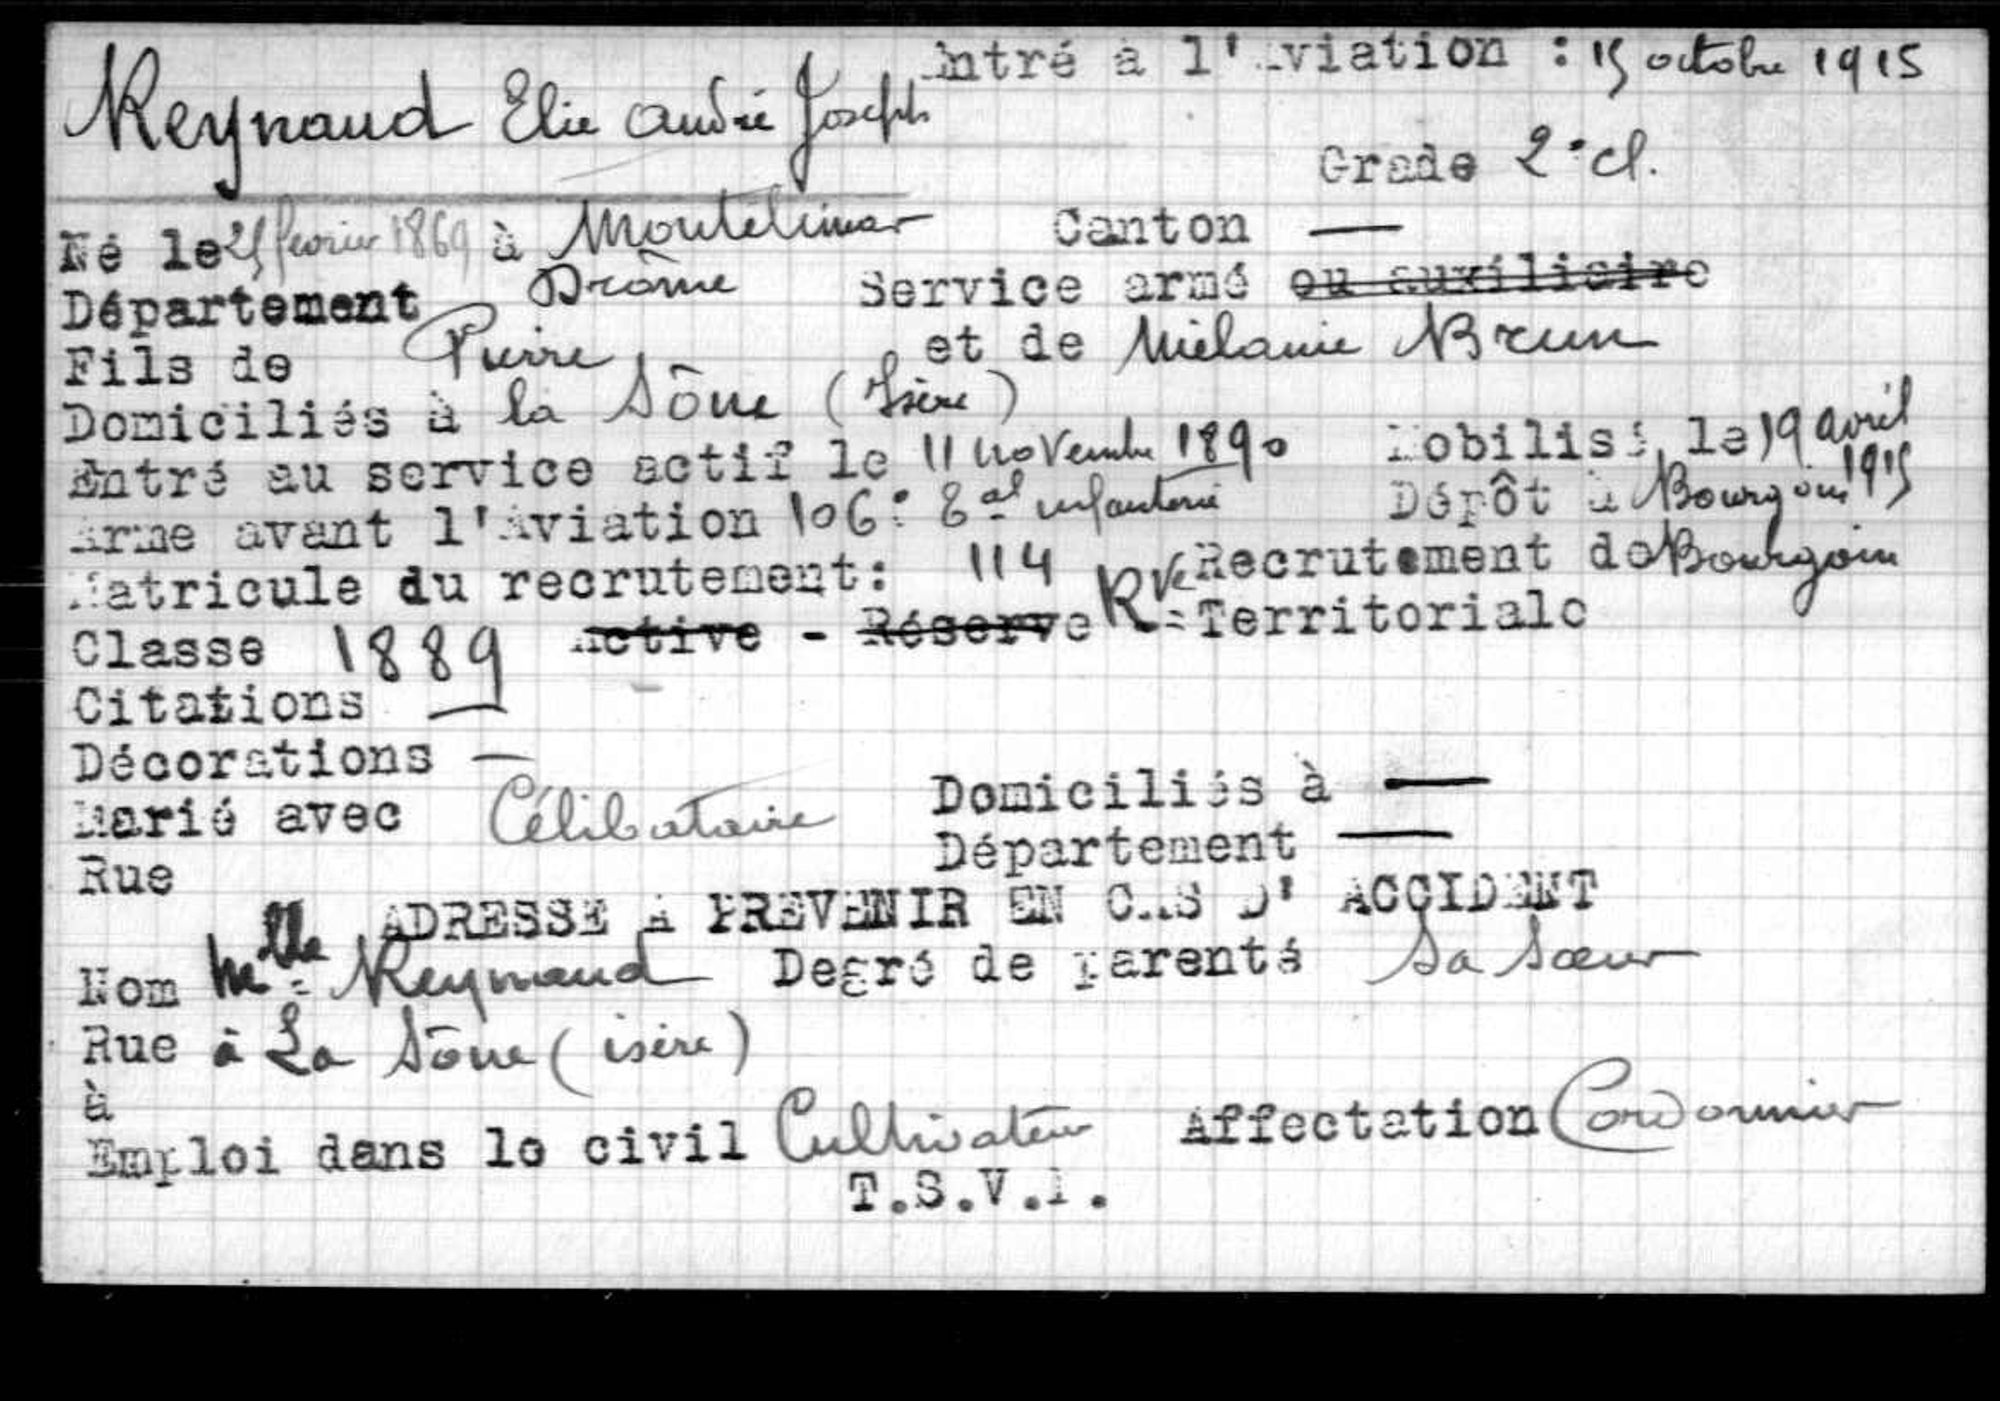 Entré à l'Aviation : 15 octobre 1915
Reynaud Elie André Joseph
Grade 2e cl.
Né le 25 février 1869 à Montélimar Canton —
Département Drôme Service armé ou auxiliaire
Fils de Pierre et de Mélanie Brun
Domiciliés à la Sône (Isère)
Entré au service actif le 11 novembre 1890 Mobilisé le 19 avril 1915
Arme avant l'Aviation 106e tal infanterie Dépôt à Bourgoin
Matricule du recrutement: 114 Recrutement de Bourgoin
Classe 1889 Active - Réserve Rve Territoriale
Citations —
Décorations —
Marié avec Célibataire Domiciliés à —
Département —
Rue
ADRESSE A PREVENIR EN CAS D' ACCIDENT
Nom Melle Reynaud Degré de parenté Sa Sœur
Rue à La Sône (isère)
à
Emploi dans le civil Cultivateur Affectation Cordonnier
T.S.V.P.